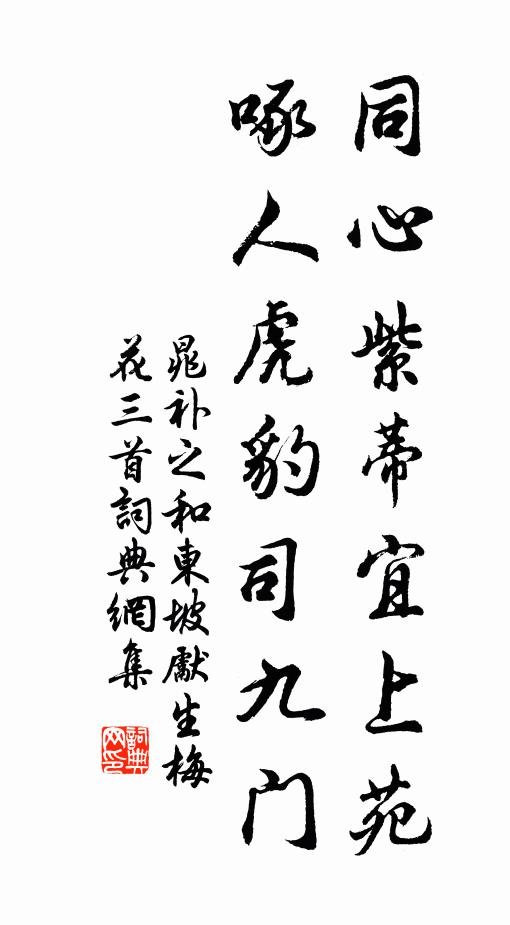 同心紫蒂宜上苑
啄人虎豹司九门
晁补之和東坡獻生梅
花三首詞典網集
詞典
网印